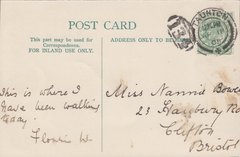 POST CARD
This part may be used for
Correspondence.
FOR INLAND USE ONLY.
ADDRESS ONLY TO BE
TAUNTON
This is where I
have been walking
today.
Florrie W.
Miss Nannie Bowe
23 Hanbury Road
Clifton
Bristol